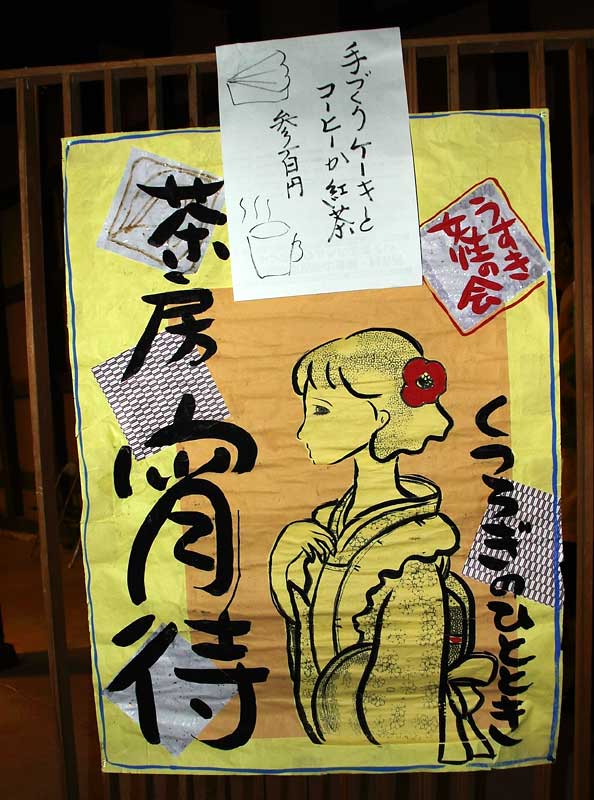 手づくりケーキと
コーヒーか紅茶
参百円
うすき
女性の会
くつろぎのひととき
茶房宵待